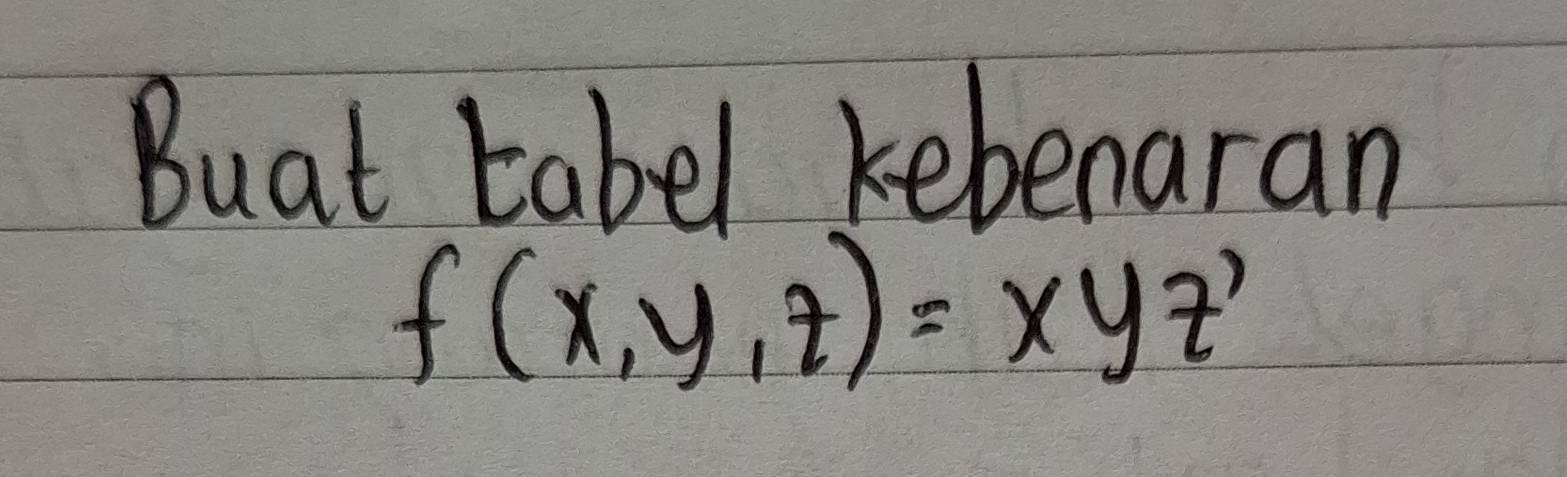 Buat tabel kebenaran
f(x,y,z)= xyz'